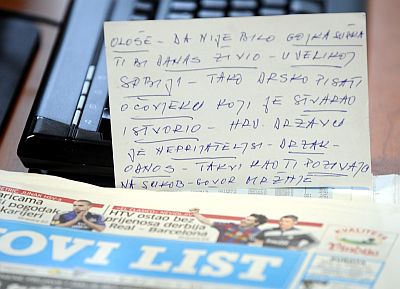 OLOŠE - DA NIJE BILO GOJKA ŠUŠKA
TI BI DANAS ŽIVIO - U VELIKOJ
SRBIJI - TAKO DRSKO PISATI
O ČOVJEKU KOJI JE STVARAO
I STVORIO - HRV. DRŽAVU
JE NEPRIJATELJSI - DRZAK-
ODNOS - TAKVI KAO TI POZIVAJU
NA SUKOB - GOVOR MRŽNJE
HTV ostao bez
prijenosa derbija
Real - Barcelona
pogodak
karijeri
KVALITETA
OVI LIST